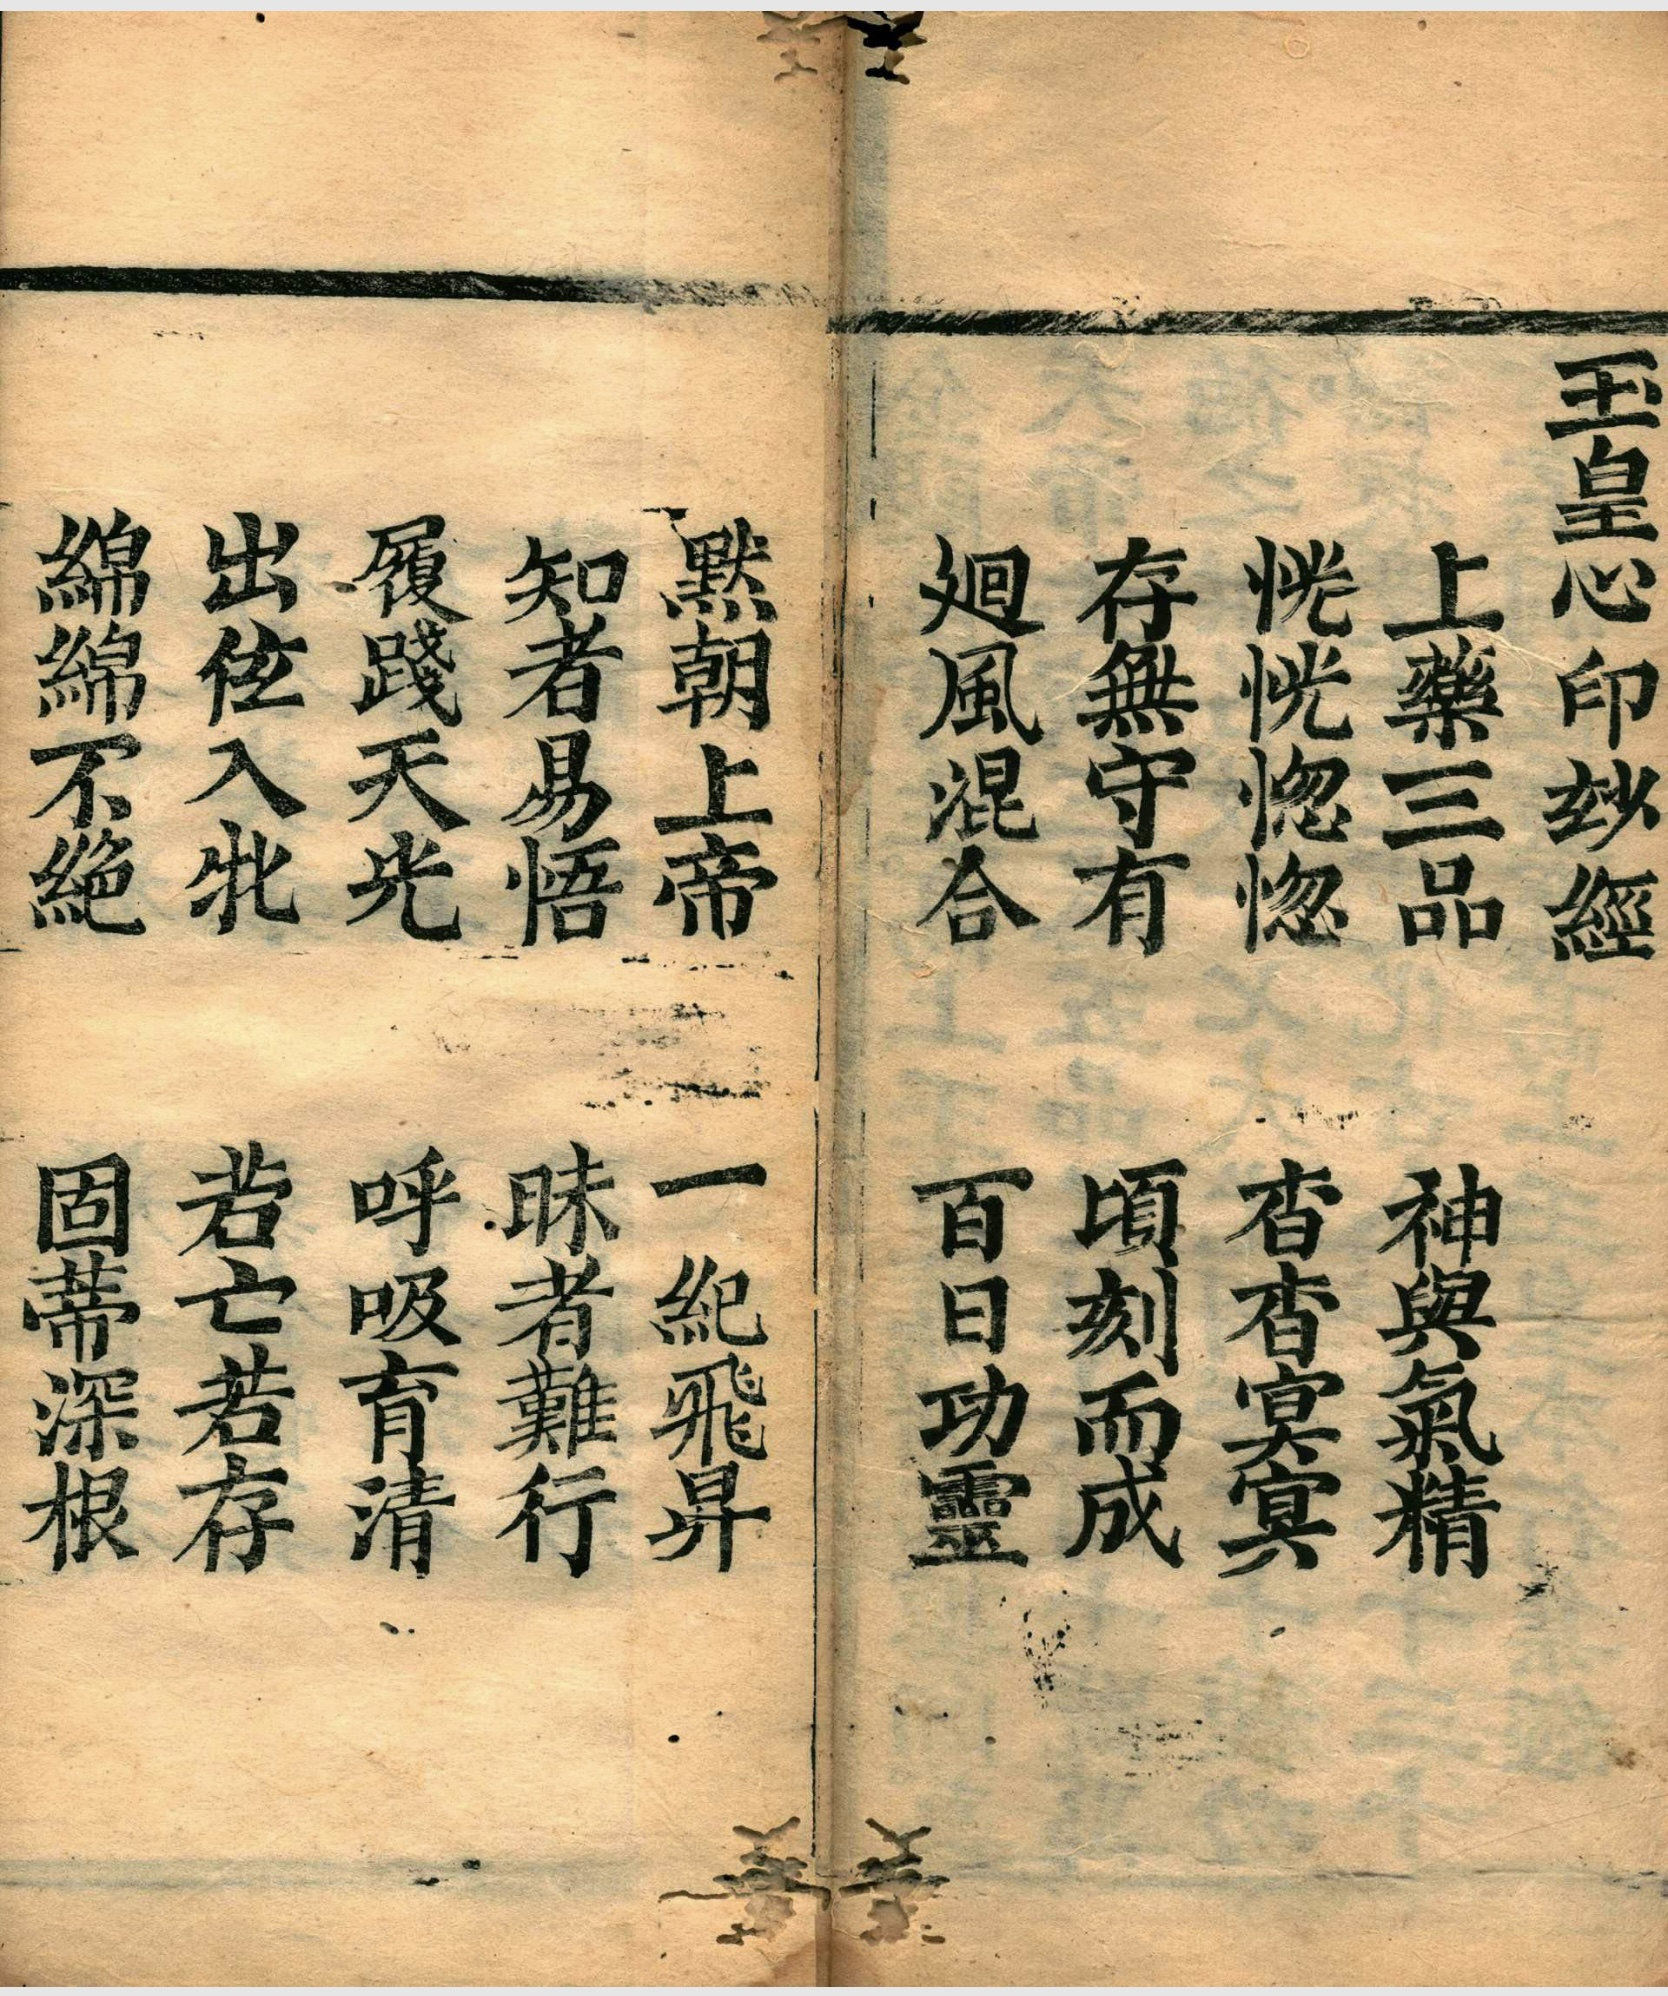 玉皇心印玅經
上藥三品　神與氣精
恍恍惚惚　杳杳㝠㝠
存無守有　頃刻而成
廻風混合　百日功靈
黙朝上帝　一紀飛昇
知者易悟　昧者難行
履踐天光　呼吸育清
出伭入牝　若亡若存
綿綿不絶　固蒂深根